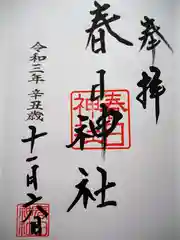 奉拝
春日神社
春日
神社
令和三年 辛丑歳
十一月六日